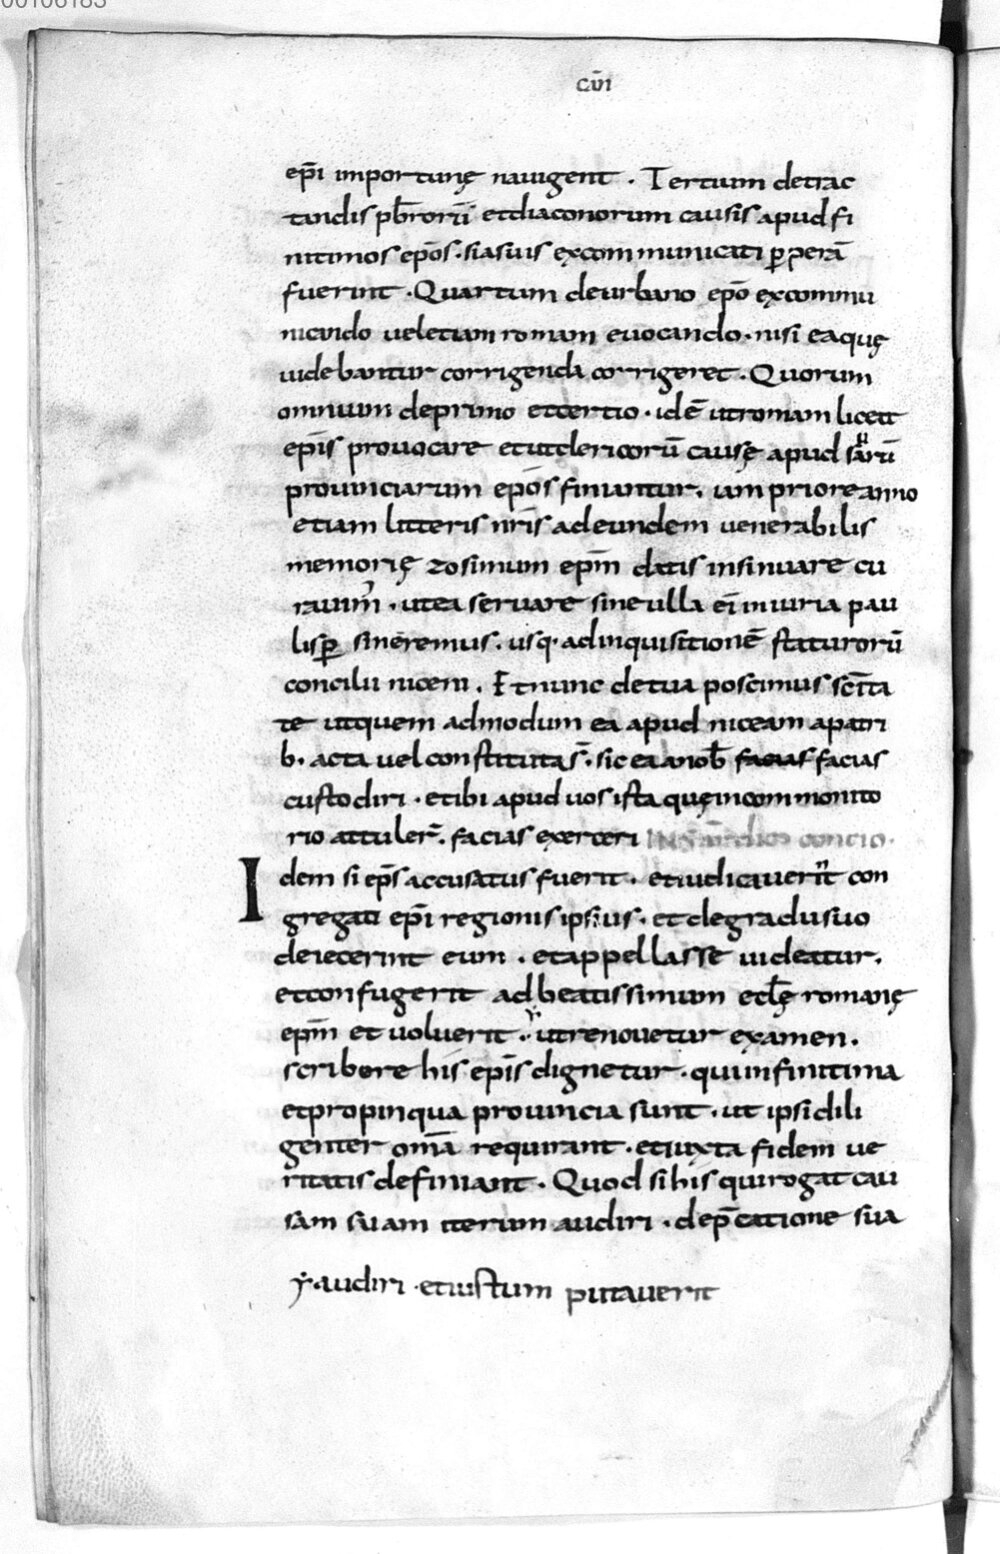 00106183
cv̄i
ep̄i importunę nauigent . Tertium detrac
tandis pb̄rorū et diaconorum causis apud fi
nitimos ep̄os . si a suis excommunicati ꝑperā
fuerint . Quartum de urbano ep̄o excommu
nicando uel etiam romam euocando . nisi ea quę
uidebantur corrigenda corrigeret . Quorum
omnium de primo et tertio . idē ut romam liceat
ep̄is prouocare et ut clericorū causę apud sarū
prouinciarum ep̄os finiantur . iam priore anno
etiam litteris nr̄is ad eundem venerabilis
memorię zosimum ep̄m datis insinuare cu
rauim᾽ . ut ea seruare sine ulla ei᷑ iniuria pau
lisꝑ sineremus . usq· ad inquisitionē staturorū
concilii niceni . Et nunc de tua poscimus sc̄ita
te ut quem admodum ea apud niceam a patri
b· acta uel constituta s̄ . sic ea a nob̄ facias facias
custodiri . et ibi apud uos ista quę in commonito
rio attuler̄ . facias exerceri
Idem si ep̄s accusatus fuerit . et iudicauerit con
gregati ep̄i regionis ipsius . et de gradu suo
deiecerint eum . et appellasse uideatur .
et confugerit ad beatissimum ecl̄ę romanę
ep̄m et uoluerit . ut renouetur examen .
scribere his ep̄is dignetur . qui in finitima
et propinqua prouincia sunt . ut ipsi dili
genter om̄a requirant . et iuxta fidem ue
ritatis definiant . Quod si his qui rogat cau
sam suam iterum audiri . dep̄catione sua
audiri . et iustum putauerit